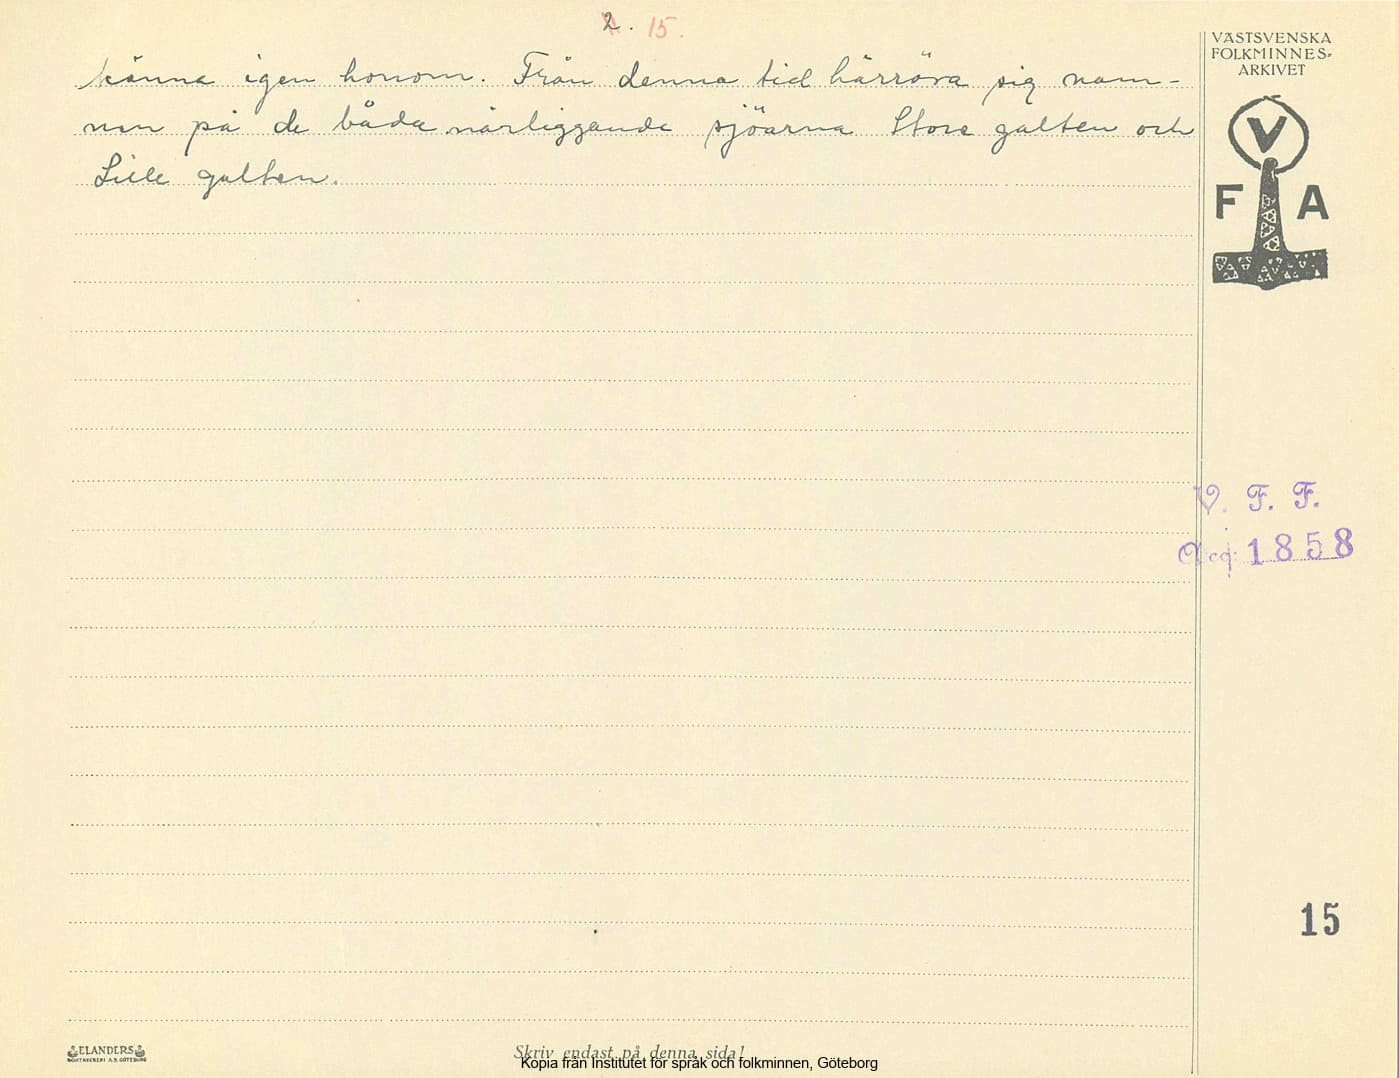 2. 15.
VÄSTSVENSKA
FOLKMINNES-
ARKIVET
känna igen honom. Från denna tid härröra sig nam-
nen på de båda närliggande sjöarna Stora galten och
Lille galten.
V
F A
V. F. F.
Acc: 1858
15
ELANDERS
Skriv endast på denna sida!
Kopia från Institutet för språk och folkminnen, Göteborg